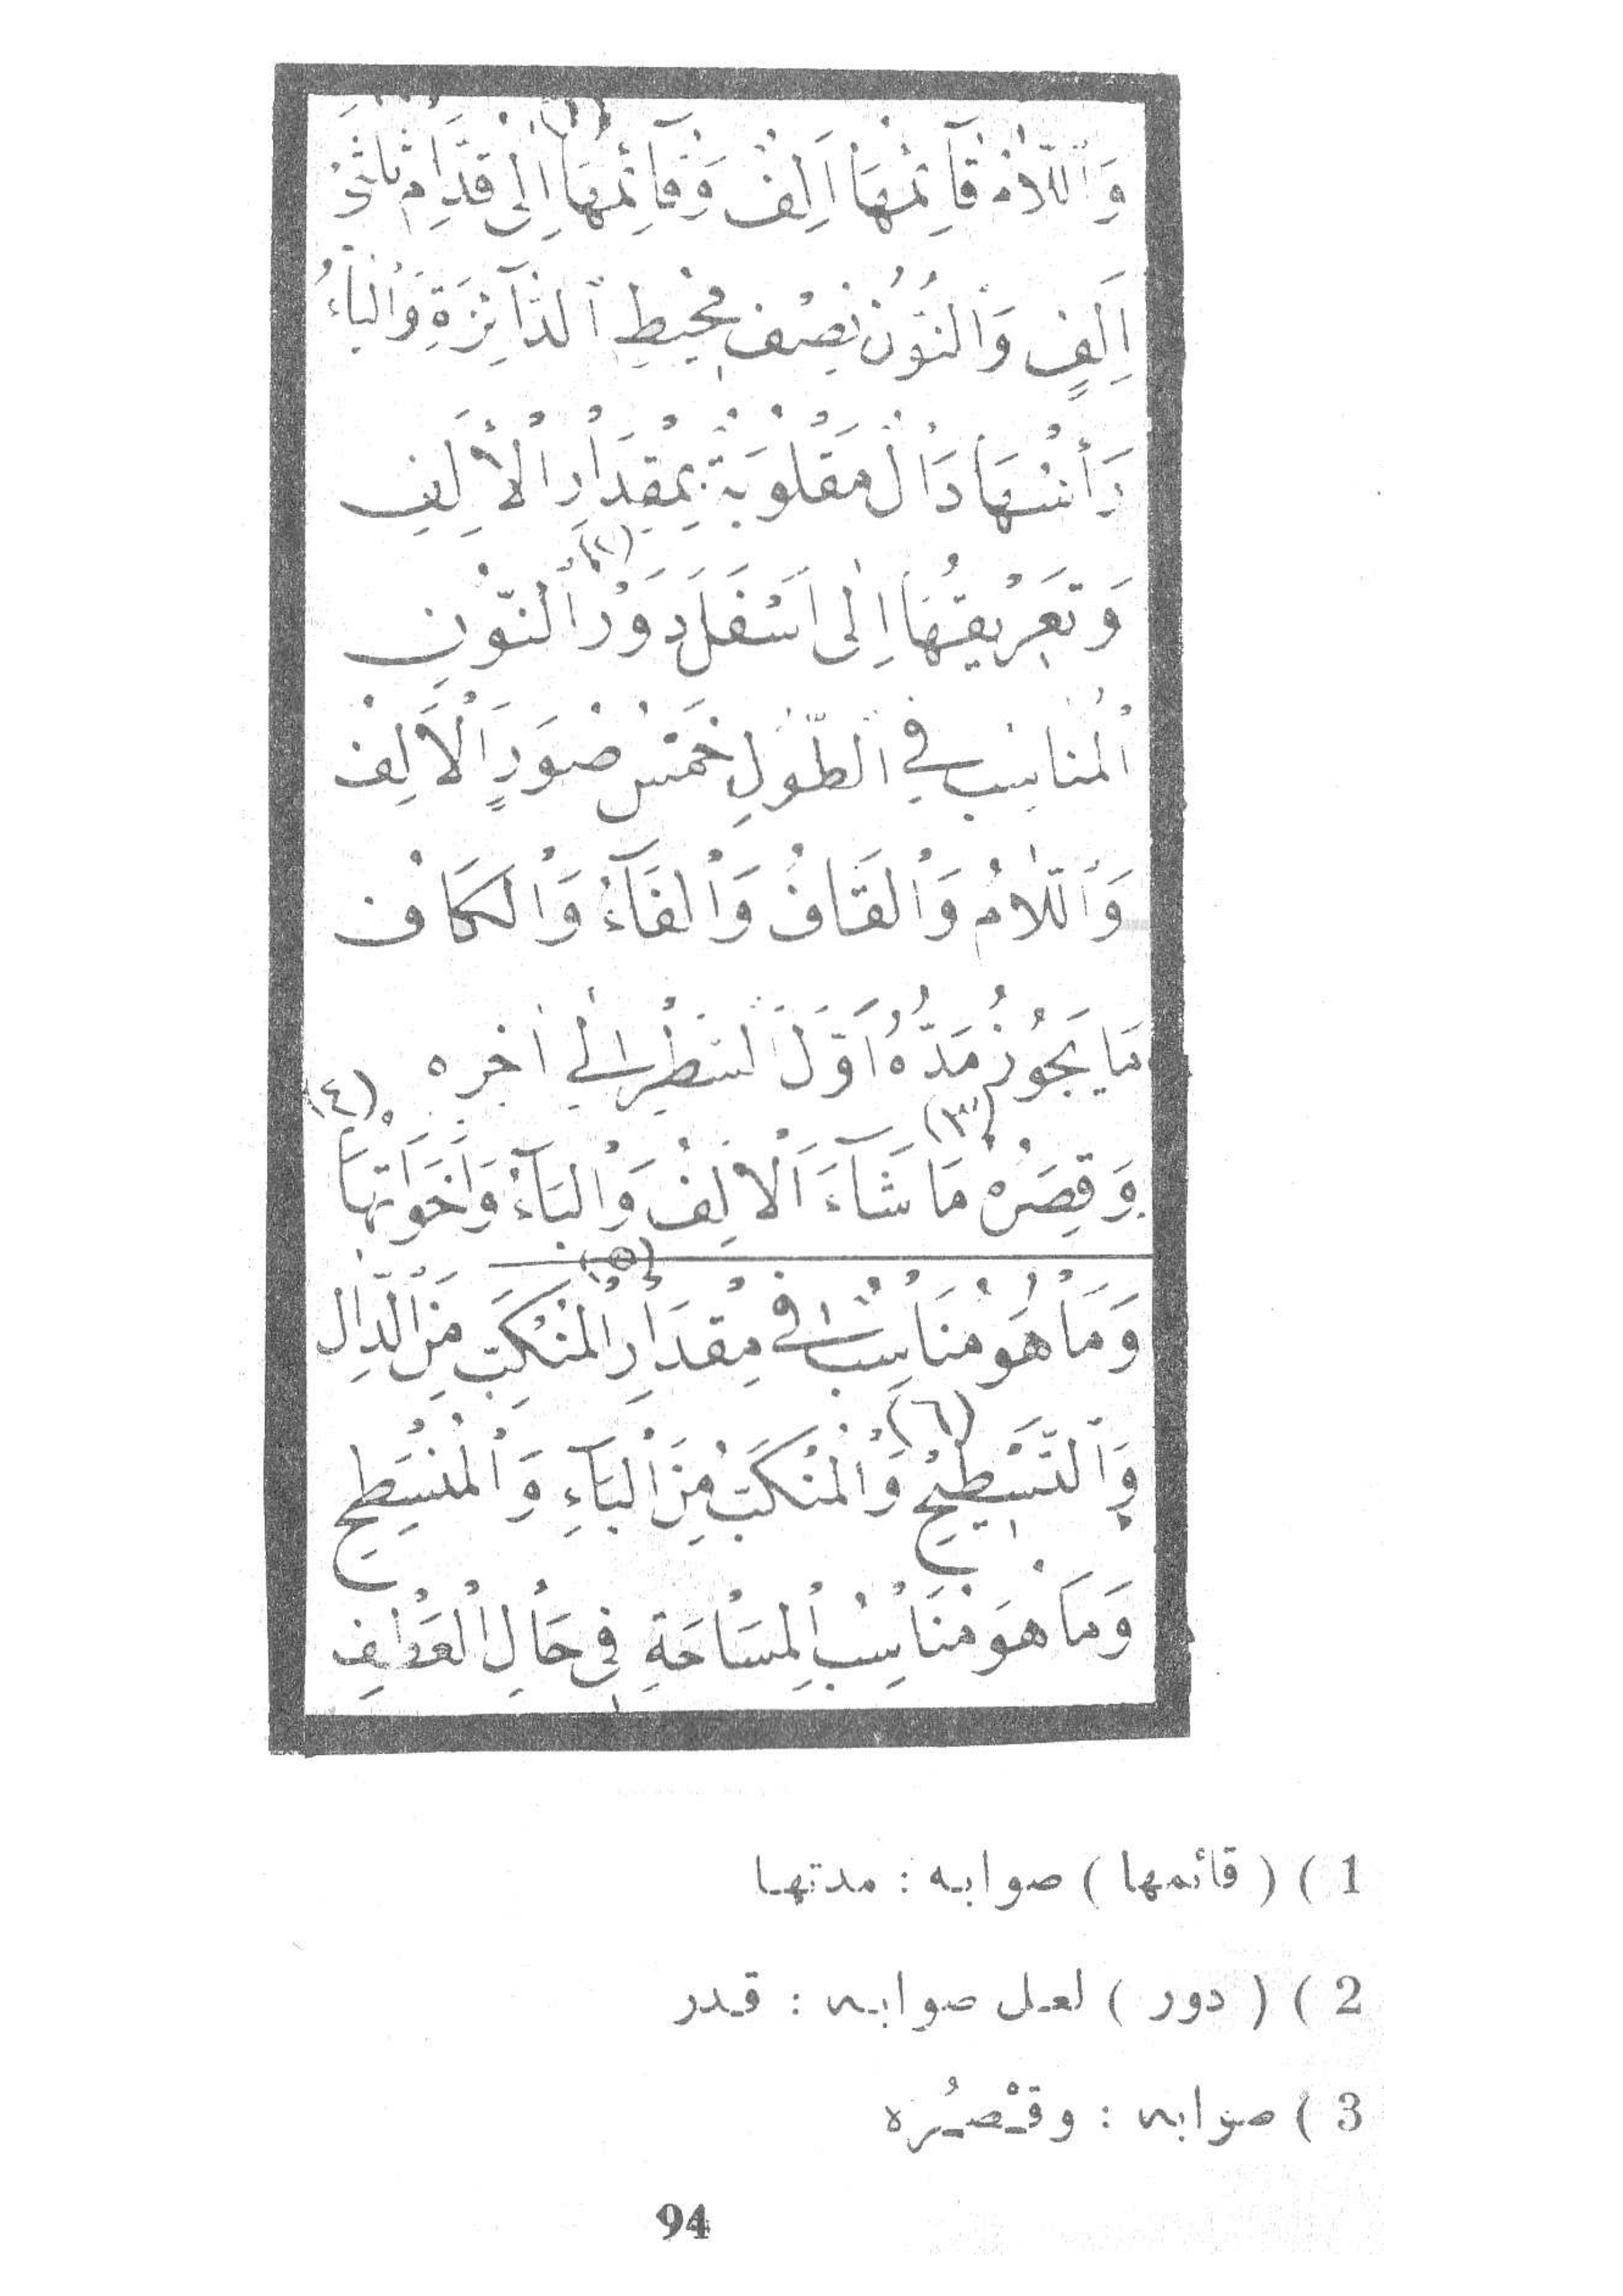 وَاللَّامُ قَآئِمُهَا اَلِفٌ وَقَآئِمُهَا (١) اِلٰى قُدَّامِ ثُلُثَىْ
اَلِفٍ وَالنُّوْنُ نِصْفُ مُحِيْطِ الدَّآئِرَةِ وَالْيَآءُ
رَأْسُهَا دَالٌ مَقْلُوْبَةٌ بِمِقْدَارِ الْأَلِفِ
وَتَعْرِيْقُهَا اِلٰى اَسْفَلَ دَوْرِ (٢) النُّوْنِ
اَلْمُنَاسِبُ فِي الطُّوْلِ خَمْسُ صُوَرٍ اَلْاَلِفُ
وَاللَّامُ وَالْقَافُ وَالْفَآءُ وَالْكَافُ
مَا يَجُوْزُ مَدُّهُ اَوَّلَ السَّطْرِ اِلٰى اٰخِرِهِ
وَقِصَرُهُ (٣) مَا شَآءَ اَلْاَلِفُ وَالْبَآءُ وَاَخَوَاتُهَا (٤)
وَمَا هُوَ مُنَاسِبٌ فِى مِقْدَارِ (٥) الْمُنْكَبِّ مِنَ الدَّالِ
وَالتَّسْطِيْحِ (٦) وَالْمُنْكَبُّ مِنَ الْبَآءِ وَالْمُنْسَطِحِ
وَمَا هُوَ مُنَاسِبُ الْمِسَاحَةِ فِى حَالِ الْعَطْفِ
1 ) ( قائمها ) صوابه : مدتها
2 ) ( دور ) لعل صوابه : قدر
3 ) صوابه : وقْصُره
94